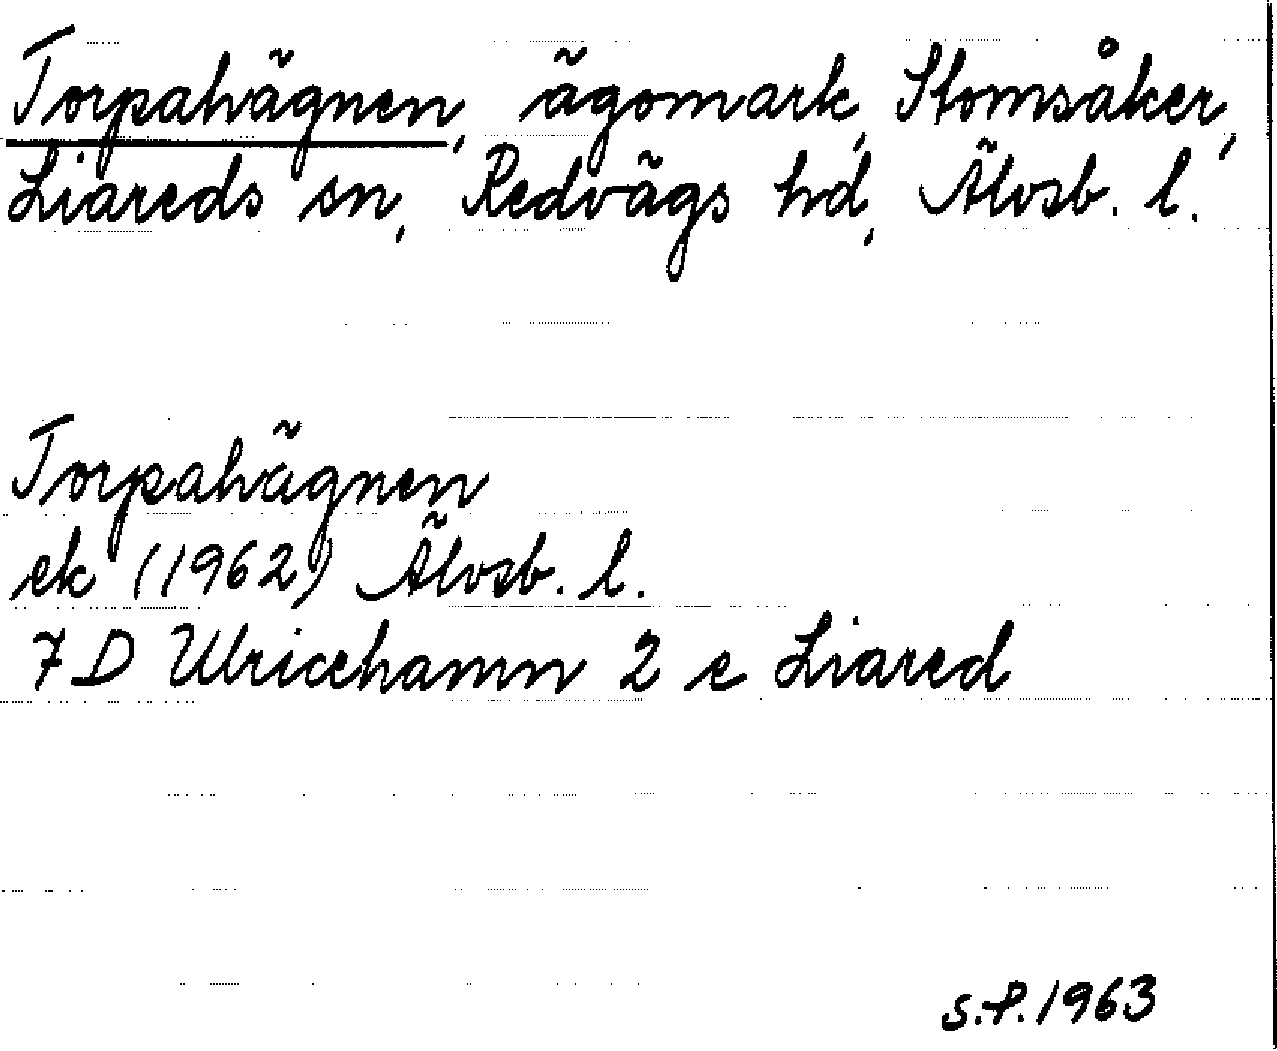 Torpahägnen, ägomark, Stomsåker,
Liareds sn, Redvägs hd, Älvsb. l.
Torpahägnen
ek (1962) Älvsb. l.
7 D Ulricehamn 2 e Liared
S.P. 1963